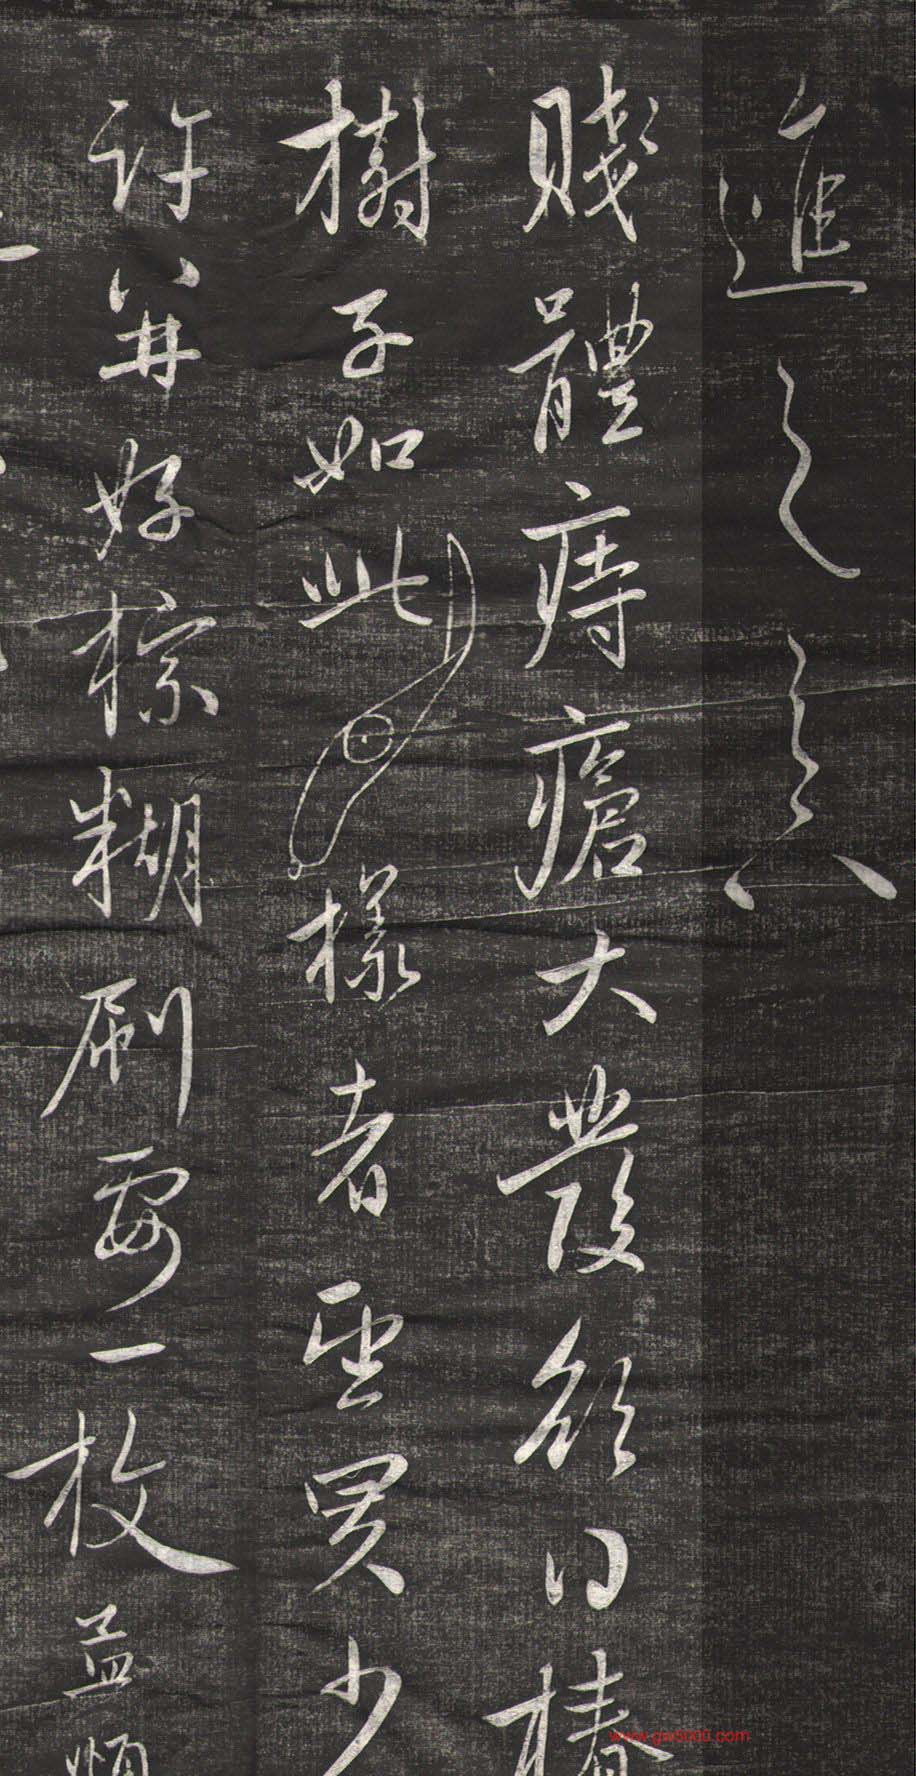 進之之六
賤體痔瘡大發欲得椿
樹子如此樣者望買少
許并好棕糊刷要一枚並煩
www.gw5000.com